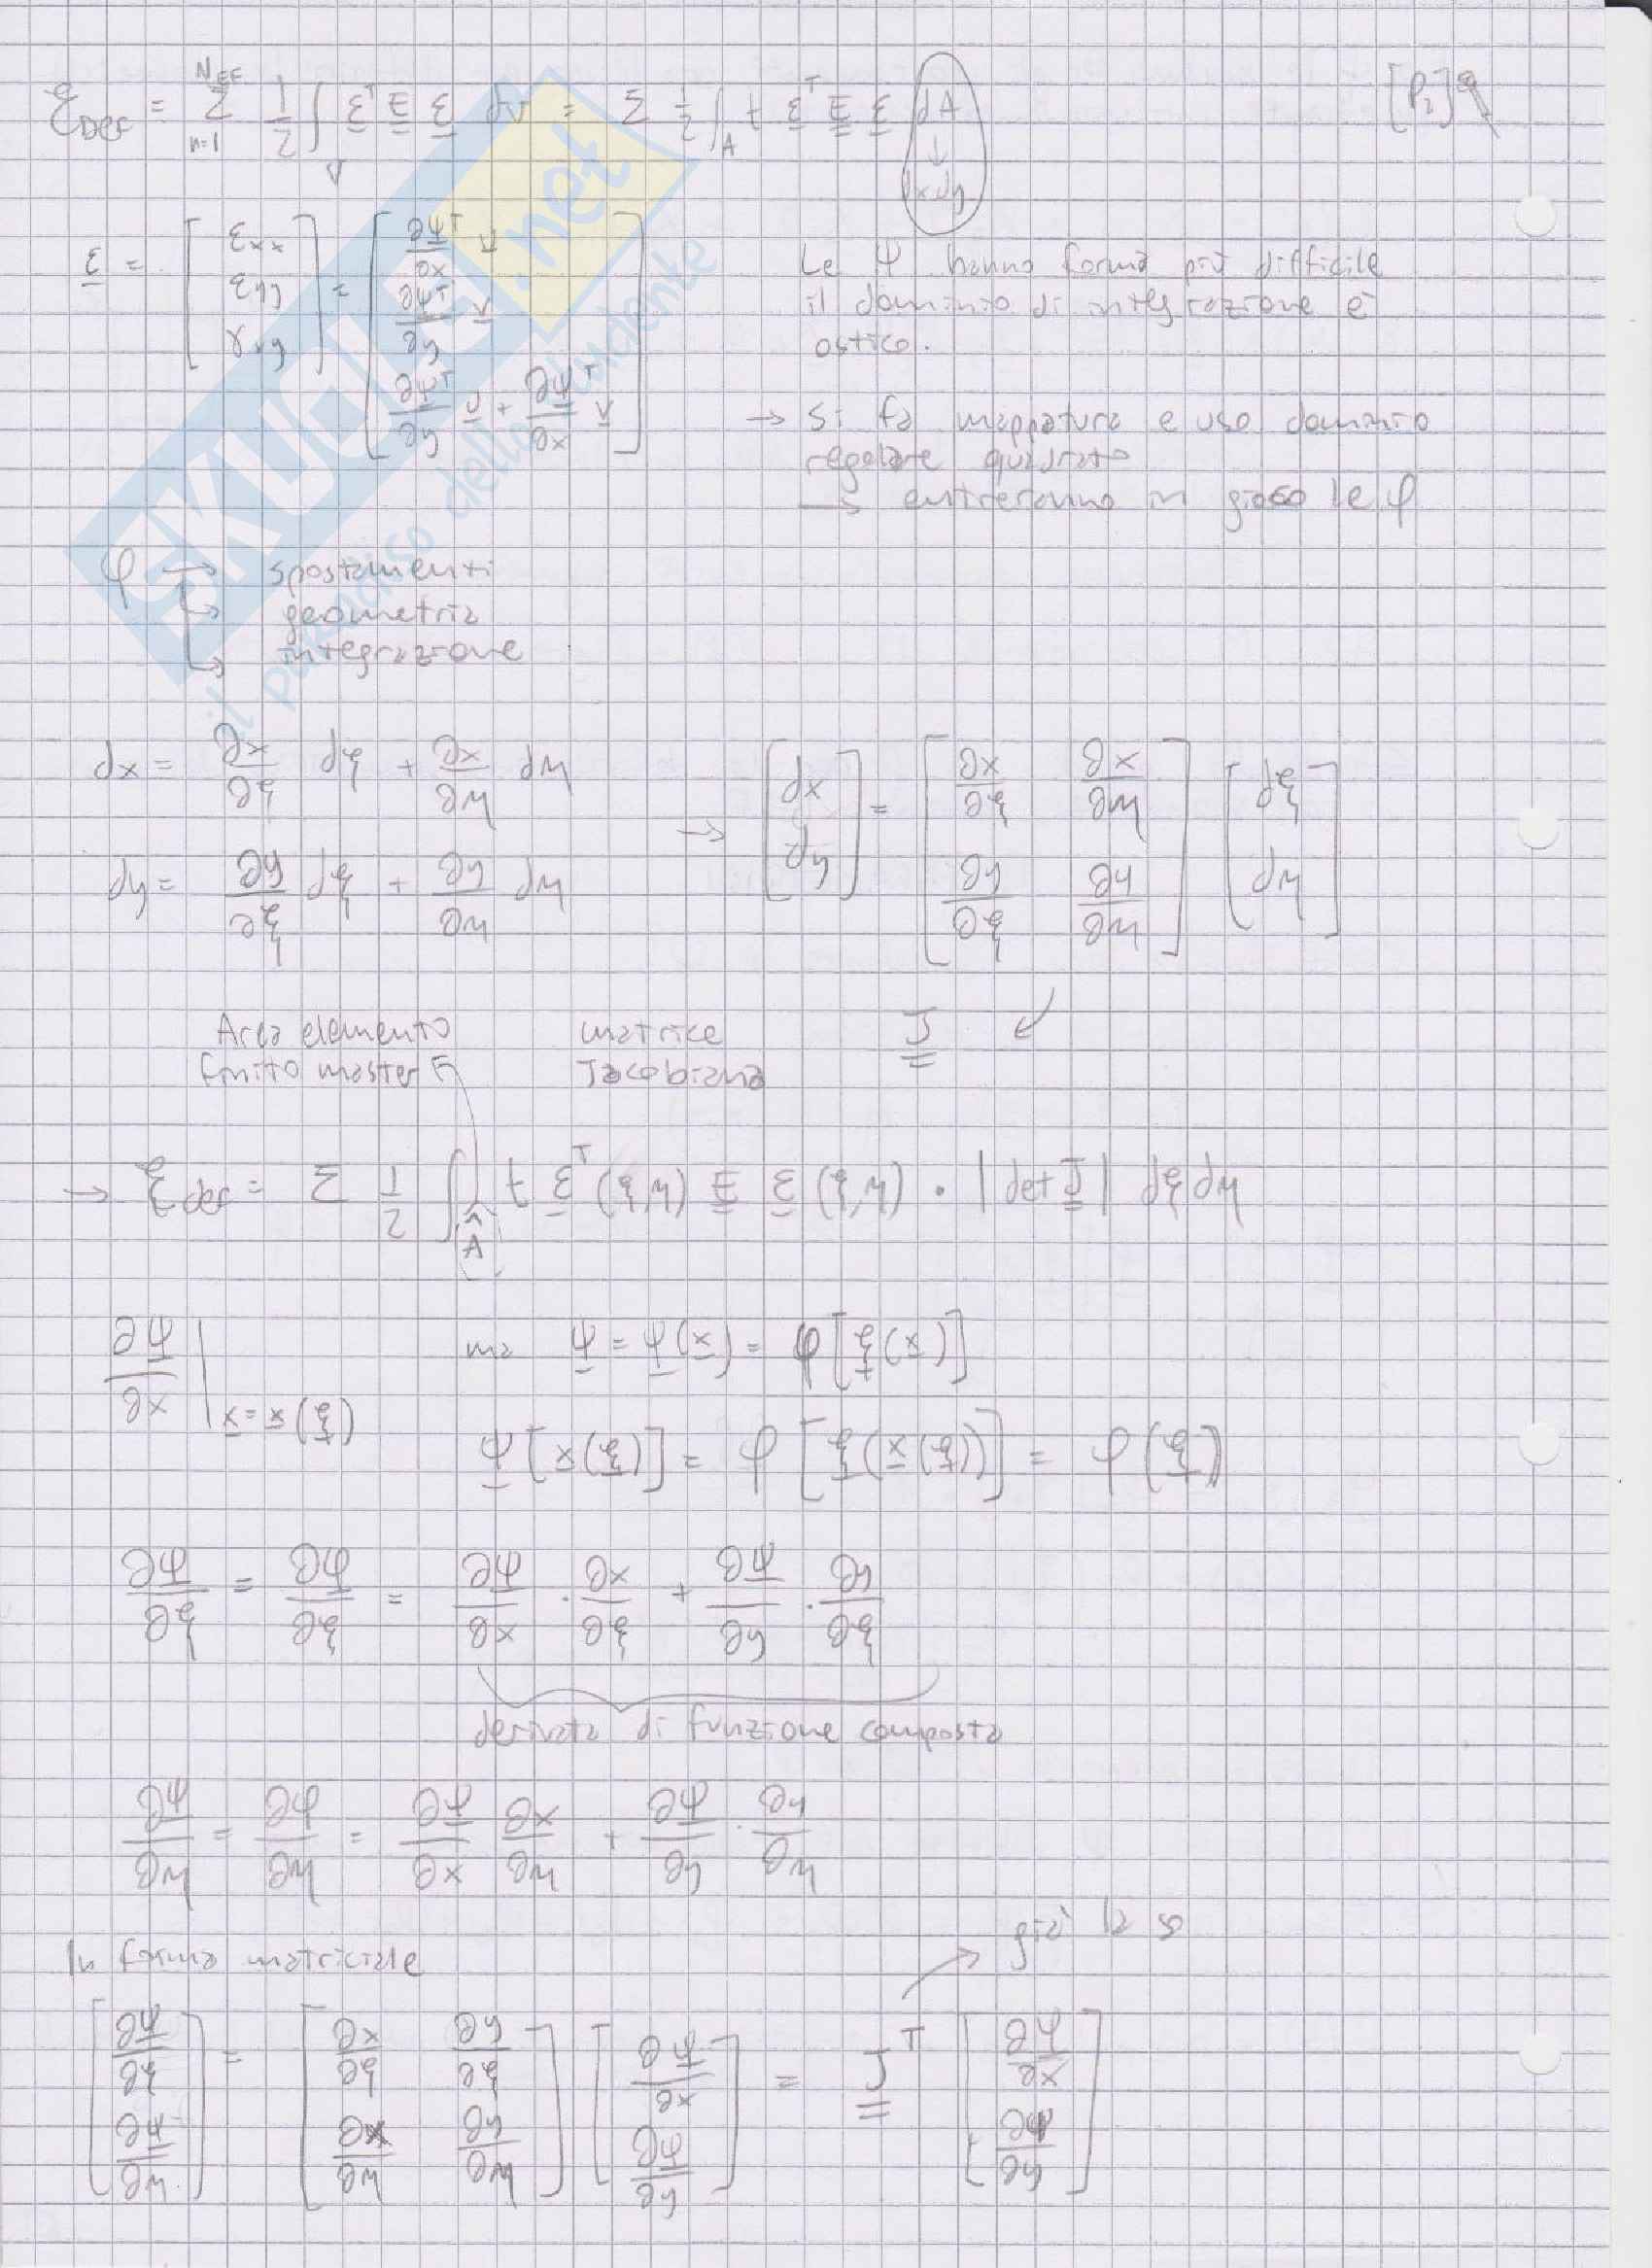 [P2] 9
ℰ_DEF = Σ_{n=1}^{N_EF} 1/2 ∫_V ε^T E ε dV = Σ 1/2 ∫_A t ε^T E ε dA
↓
dxdy
ε = [ε_xx ; ε_yy ; γ_xy] = [∂ψ^T/∂x u ; ∂ψ^T/∂y v ; ∂ψ^T/∂y u + ∂ψ^T/∂x v]
Le ψ hanno forma più difficile
il dominio di integrazione è
ostico.
→ Si fa mappatura e uso dominio
regolare quadrato
→ entreranno in gioco le φ
φ → spostamenti
→ geometria
→ integrazione
dx = ∂x/∂ξ dξ + ∂x/∂η dη
dy = ∂y/∂ξ dξ + ∂y/∂η dη
→ [dx ; dy] = [∂x/∂ξ ∂x/∂η ; ∂y/∂ξ ∂y/∂η] [dξ ; dη]
Area elemento
finito master
matrice
Jacobiana
J
→ ℰ_DEF = Σ 1/2 ∫_Â t ε^T (ξ,η) E ε (ξ,η) · |det J| dξ dη
∂ψ/∂x |_{x=x(ξ)} ma ψ = ψ(x) = φ[ξ(x)]
ψ[x(ξ)] = φ[ξ(x(ξ))] = φ(ξ)
∂ψ/∂ξ = ∂φ/∂ξ = ∂ψ/∂x · ∂x/∂ξ + ∂ψ/∂y · ∂y/∂ξ
derivata di funzione composta
∂ψ/∂η = ∂φ/∂η = ∂ψ/∂x ∂x/∂η + ∂ψ/∂y · ∂y/∂η
già la so
In forma matriciale
[∂ψ/∂ξ ; ∂ψ/∂η] = [∂x/∂ξ ∂y/∂ξ ; ∂x/∂η ∂y/∂η] [∂ψ/∂x ; ∂ψ/∂y] = J^T [∂ψ/∂x ; ∂ψ/∂y]
SKUOLA.net
il paradiso dello studente